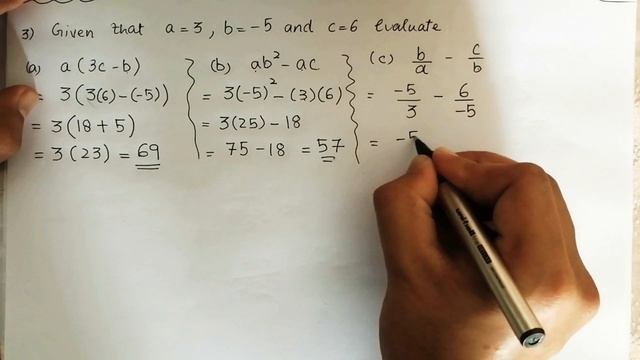 3) Given that a = 3, b = -5 and c = 6 evaluate
(a) a(3c - b)
= 3(3(6) - (-5))
= 3(18 + 5)
= 3(23) = 69
(b) ab² - ac
= 3(-5)² - (3)(6)
= 3(25) - 18
= 75 - 18 = 57
(c) b/a - c/b
= -5/3 - 6/-5
= -5